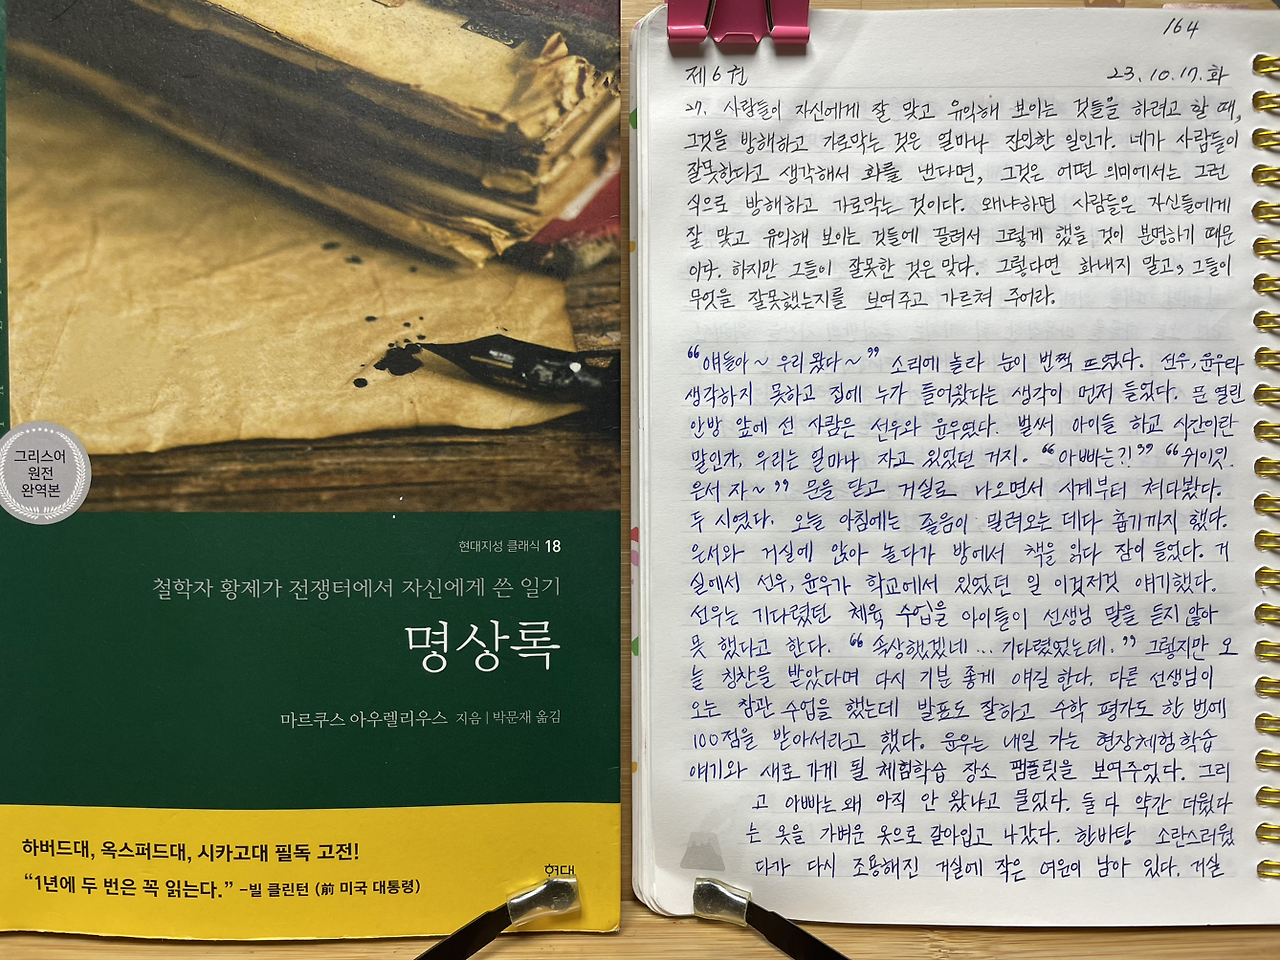 그리스어
원전
완역본
현대지성 클래식 18
철학자 황제가 전쟁터에서 자신에게 쓴 일기
명상록
마르쿠스 아우렐리우스 지음 | 박문재 옮김
하버드대, 옥스퍼드대, 시카고대 필독 고전!
“1년에 두 번은 꼭 읽는다.” –빌 클린턴 (前 미국 대통령)
현대
164
제6권 23.10.17.화
27. 사람들이 자신에게 잘 맞고 유익해 보이는 것들을 하려고 할 때,
그것을 방해하고 가로막는 것은 얼마나 잔인한 일인가. 네가 사람들이
잘못한다고 생각해서 화를 낸다면, 그것은 어떤 의미에서는 그런
식으로 방해하고 가로막는 것이다. 왜냐하면 사람들은 자신들에게
잘 맞고 유익해 보이는 것들에 끌려서 그렇게 했을 것이 분명하기 때문
이다. 하지만 그들이 잘못한 것은 맞다. 그렇다면 화내지 말고, 그들이
무엇을 잘못했는지를 보여주고 가르쳐 주어라.
“얘들아~ 우리 왔다~” 소리에 놀라 눈이 번쩍 뜨였다. 선우, 윤우라
생각하지 못하고 집에 누가 들어왔다는 생각이 먼저 들었다. 문 열린
안방 앞에 선 사람은 선우와 윤우였다. 벌써 아이들 하교 시간이란
말인가, 우리는 얼마나 자고 있었던 거지. “아빠는?!” “쉬이잇.
은서 자~” 문을 닫고 거실로 나오면서 시계부터 쳐다봤다.
두 시였다. 오늘 아침에는 졸음이 밀려오는 데다 춥기까지 했다.
은서와 거실에 앉아 놀다가 방에서 책을 읽다 잠이 들었다. 거
실에서 선우, 윤우가 학교에서 있었던 일 이것저것 얘기했다.
선우는 기다렸던 체육 수업을 아이들이 선생님 말을 듣지 않아
못 했다고 한다. “속상했겠네... 기다렸었는데.” 그렇지만 오
늘 칭찬을 받았다며 다시 기분 좋게 얘길 한다. 다른 선생님이
오는 참관 수업을 했는데 발표도 잘하고 수학 평가도 한 번에
100점을 받아서라고 했다. 윤우는 내일 가는 현장체험학습
얘기와 새로 가게 될 체험학습 장소 팸플릿을 보여주었다. 그리
고 아빠는 왜 아직 안 왔냐고 물었다. 둘 다 약간 더웠다
는 옷을 가벼운 옷으로 갈아입고 나갔다. 한바탕 소란스러웠
다가 다시 조용해진 거실에 작은 여운이 남아 있다. 거실